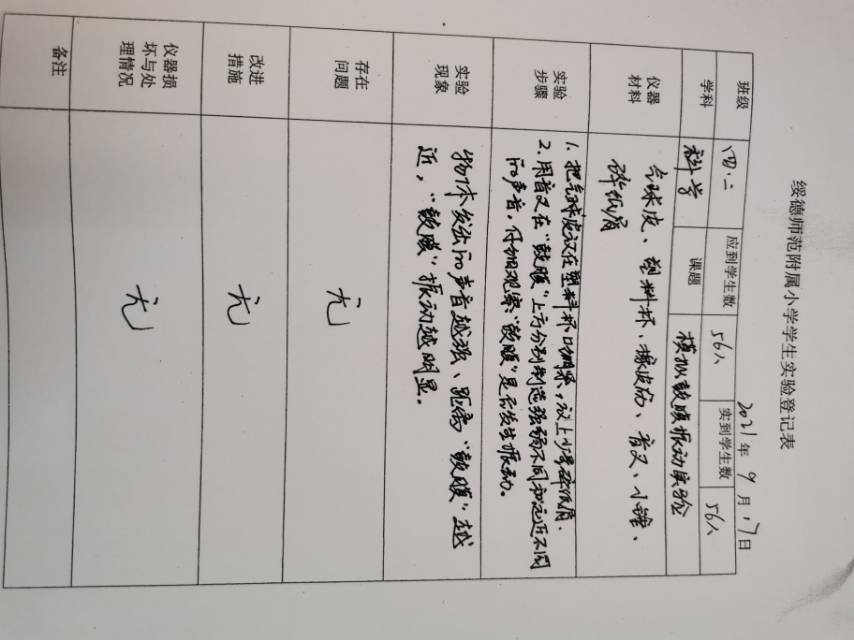 绥德师范附属小学学生实验登记表
2021年 9月 17日
班级 四.二 应到学生数 56人 实到学生数 56人
学科 科学 课题 模拟鼓膜振动实验
仪器材料
气球皮、塑料杯、橡皮筋、音叉、小锤、
碎纸屑
实验步骤
1. 把气球皮 在塑料杯口 , 上少量碎纸屑.
2. 用音叉在“鼓膜”上方分别制造强弱不同和远近不同
的声音,仔细观察“鼓膜”是否发生振动。
实验现象
物体发出的声音越强、距离“鼓膜”越
近,“鼓膜”振动越明显。
存在问题
无
改进措施
无
仪器损坏与处理情况
无
备注